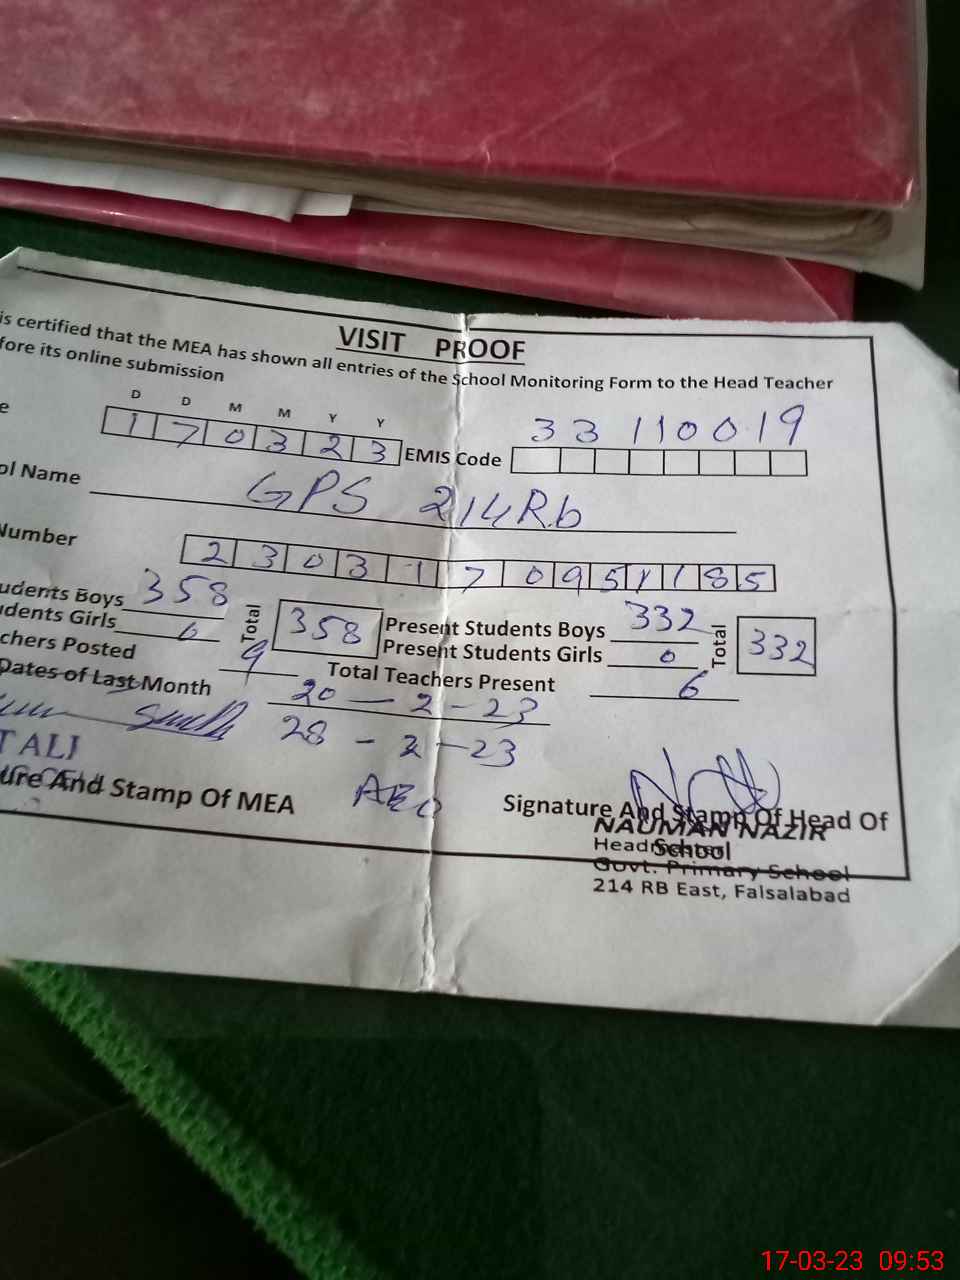 VISIT PROOF
is certified that the MEA has shown all entries of the School Monitoring Form to the Head Teacher
fore its online submission
D D M M Y Y
e 1 7 0 3 2 3 EMIS Code 33110019
ol Name GPS 214Rb
Number 2 3 0 3 1 7 0 9 5 1 1 8 5
udents Boys 358 Total 358 Present Students Boys 332 Total 332
udents Girls 0 Present Students Girls 0
chers Posted 9 Total Teachers Present 6
Dates of Last Month 20 - 2 - 23
28 - 2 - 23
T ALI
ure And Stamp Of MEA AEO Signature And Stamp Of Head Of
School
NAUMAN NAZIR
Headmaster
Govt. Primary School
214 RB East, Faisalabad
17-03-23 09:53